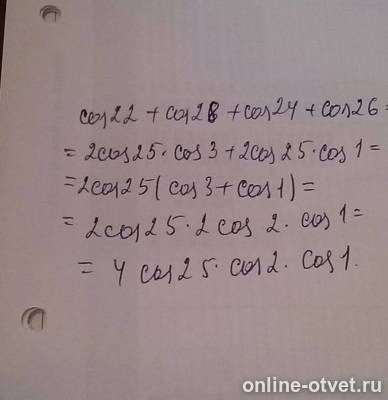 cos22 + cos28 + cos24 + cos26 =
= 2cos25 · cos3 + 2cos25 · cos1 =
= 2cos25 ( cos3 + cos1 ) =
= 2cos25 · 2 cos 2 · cos 1 =
= 4 cos25 · cos2 · cos1.
online-otvet.ru